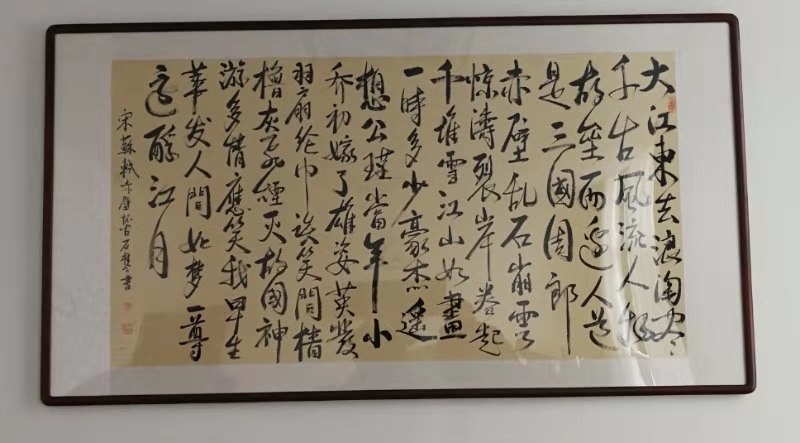 大江東去浪淘尽
千古風流人物
故垒西邊人道
是三國周郎
赤壁乱石崩雲
惊濤裂岸卷起
千堆雪江山如畫
一時多少豪杰遥
想公瑾當年小
乔初嫁了雄姿英發
羽扇纶巾谈笑間檣
櫓灰飛煙灭故國神
游多情應笑我早生
華发人間如梦一尊
還酹江月
宋蘇軾赤壁怀古 書